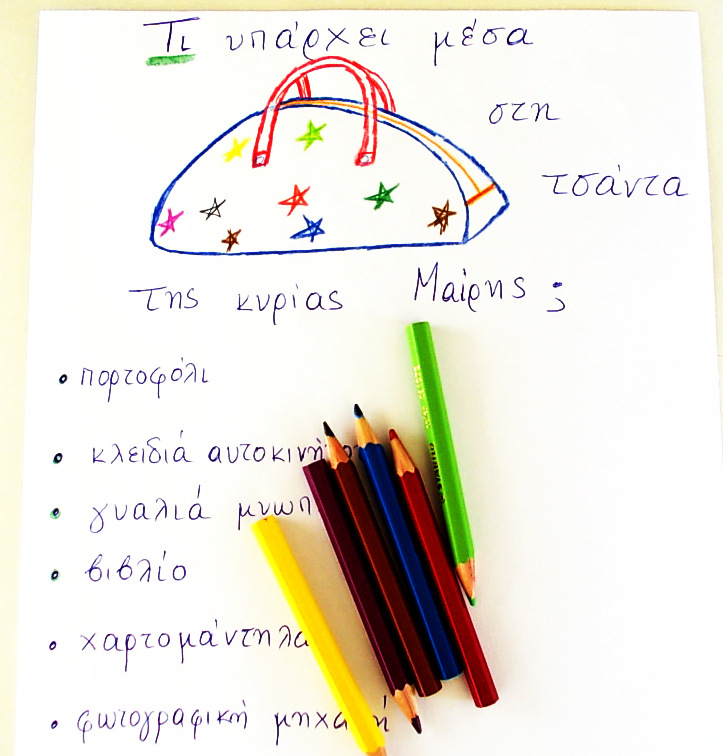 Τι υπάρχει μέσα
στη
τσάντα
της κυρίας Μαίρης ;
• πορτοφόλι
• κλειδιά
• γυαλιά
• βιβλίο
• χαρτομάντηλα
• φωτογραφική μηχανή